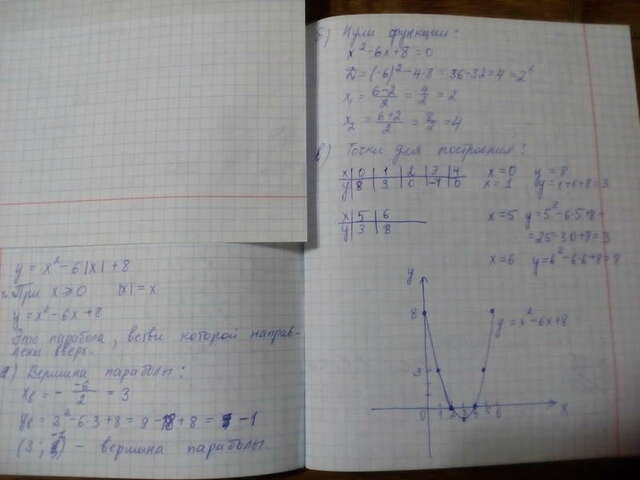 y = x² - 6|x| + 8
При x ≥ 0 |x| = x
y = x² - 6x + 8
Это парабола, ветви которой направ-
лены вверх.
а) Вершина параболы:
x₀ = - -6/2 = 3
y₀ = 3² - 6·3 + 8 = 9 - 18 + 8 = -1
(3; -1) - вершина параболы.
б) Нули функции:
x² - 6x + 8 = 0
D = (-6)² - 4·8 = 36 - 32 = 4 = 2²
x₁ = 6-2/2 = 4/2 = 2
x₂ = 6+2/2 = 8/2 = 4
в) Точки для построения:
x 0 1 2 3 4 x = 0 y = 8
y 8 3 0 -1 0 x = 1 y = 1-6+8 = 3
x 5 6 x = 5 y = 5² - 6·5 + 8 =
y 3 8 = 25 - 30 + 8 = 3
x = 6 y = 6² - 6·6 + 8 = 8
y
8
y = x² - 6x + 8
3
0 1 2 3 4 5 6 x